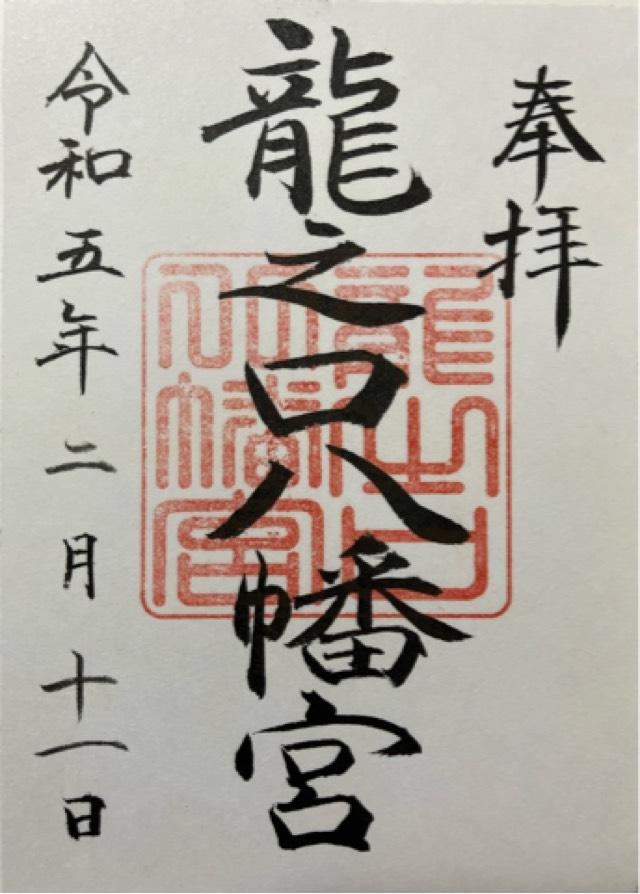 奉拝
龍之口八幡宮
令和五年二月十一日
龍之口
八幡宮